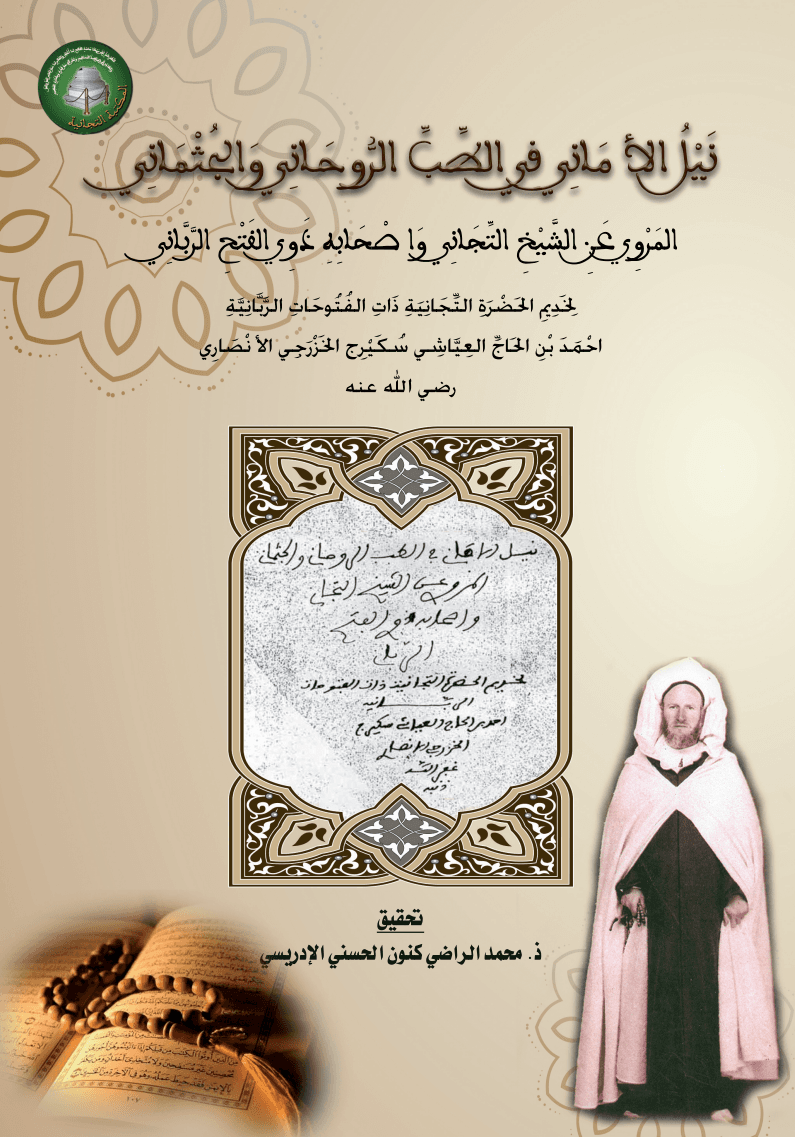 نَيْلُ الأمَانِي في الطِّبِّ الرُّوحَانِي وَالجُثْمَانِي
المَرْوِي عَنِ الشَّيْخِ التِّجَانِي وَاصْحَابِهِ ذَوِي الفَتْحِ الرَّبَّانِي
لِخَدِيمِ الحَضْرَةِ التِّجَانِيَةِ ذَاتِ الفُتُوحَاتِ الرَّبَّانِيَّةِ
احْمَدَ بْنِ الحَاجِّ العِيَّاشِي سُكَيْرِج الخَزْرَجِي الأنْصَارِي
رضي الله عنه
المكتبة التجانية
نيل الاماني في الطب الروحاني والجثماني
المروي عن الشيخ التجاني
واصحابه ذوي الفتح
الرباني
لخديم الحضرة التجانية ذات الفتوحات
الربانية
احمد بن الحاج العياشي سكيرج
الخزرجي الانصاري
غفر الله
ذنبه
تحقيق
ذ. محمد الراضي كنون الحسني الإدريسي